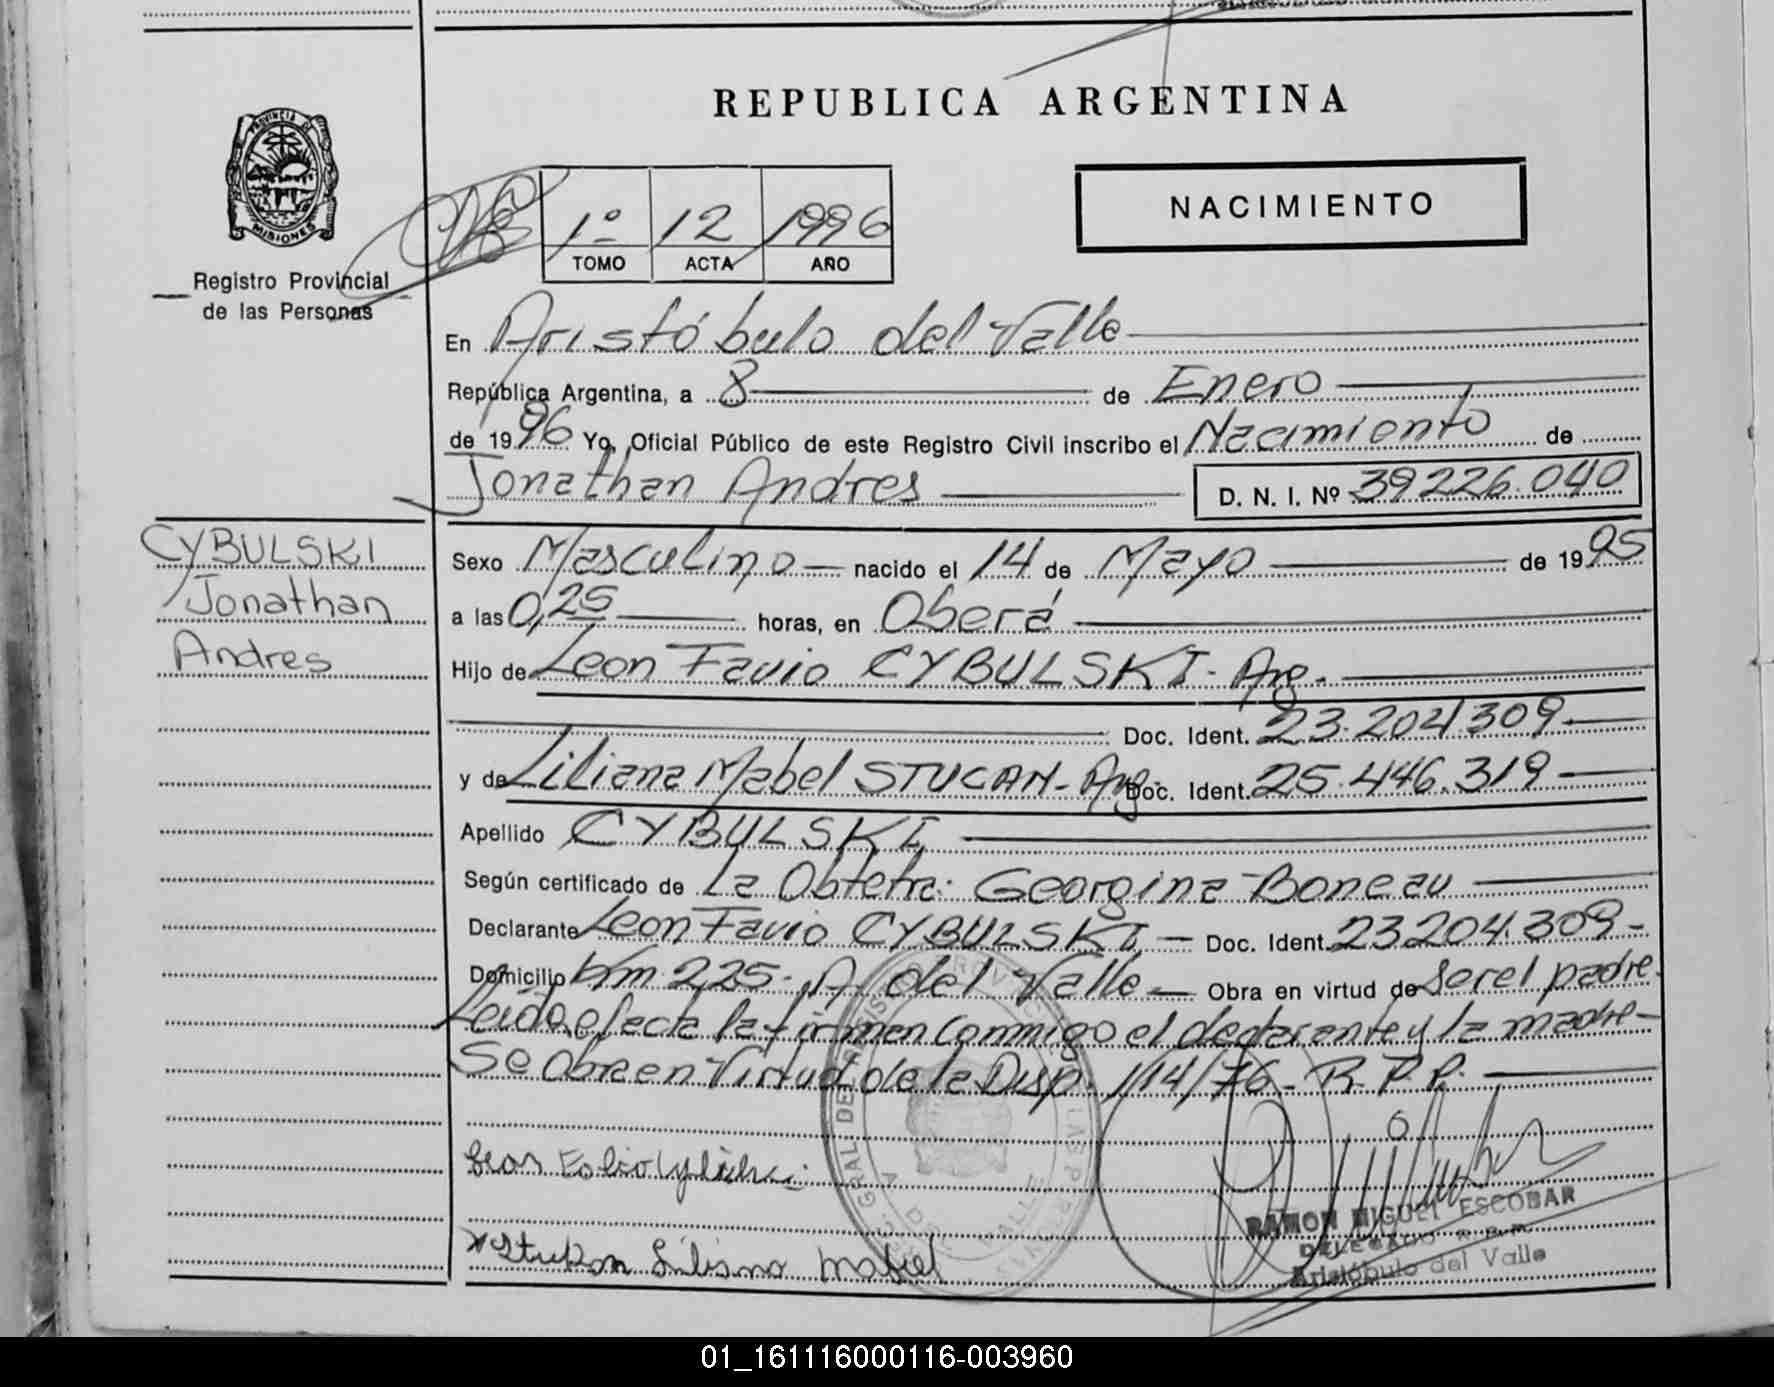 REPUBLICA ARGENTINA
PROVINCIA DE
MISIONES
Registro Provincial
de las Personas
1º 12 1996
TOMO ACTA AÑO
NACIMIENTO
En Aristóbulo del Valle
República Argentina, a 8 de Enero
de 1996 Yo, Oficial Público de este Registro Civil inscribo el Nacimiento de
Jonathan Andres D. N. I. Nº 39226.040
CYBULSKI
Jonathan
Andres
Sexo Masculino nacido el 14 de Mayo de 1995
a las 0,25 horas, en Oberá
Hijo de Leon Favio CYBULSKI - Arg.
Doc. Ident. 23.204.309
y de Liliana Mabel STUCAN - Arg. Doc. Ident. 25.446.319
Apellido CYBULSKI
Según certificado de La Obtetra: Georgina Boneau
Declarante Leon Favio CYBULSKI - Doc. Ident. 23204.309 -
Domicilio Km 225 - A. del Valle - Obra en virtud de ser el padre.
Leida el acta la firman conmigo el declarante y la madre -
Se obra en virtud de la Disp. 114/76 - R.P.P.
Stukan Liliana Mabel
RAMON MIGUEL ESCOBAR
DELEGADO R.P.P.
Aristóbulo del Valle
01_161116000116-003960